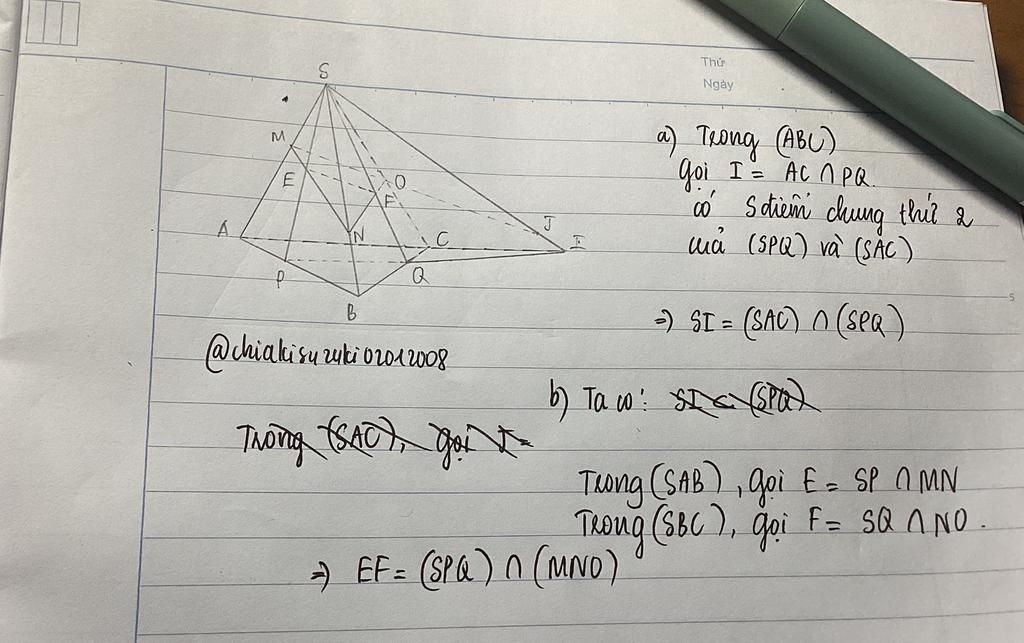 Thứ
Ngày
S
M
E
O
F
A
N
C
J
I
P
Q
B
a) Trong (ABC)
gọi I = AC ∩ PQ.
có S điểm chung thứ 2
của (SPQ) và (SAC)
5
=> SI = (SAC) ∩ (SPQ)
@chiakisuzuki02012008
b) Ta có: SI ⊂ (SPQ)
Trong (SAC), gọi I =
Trong (SAB), gọi E = SP ∩ MN
Trong (SBC), gọi F = SQ ∩ NO.
=> EF = (SPQ) ∩ (MNO)